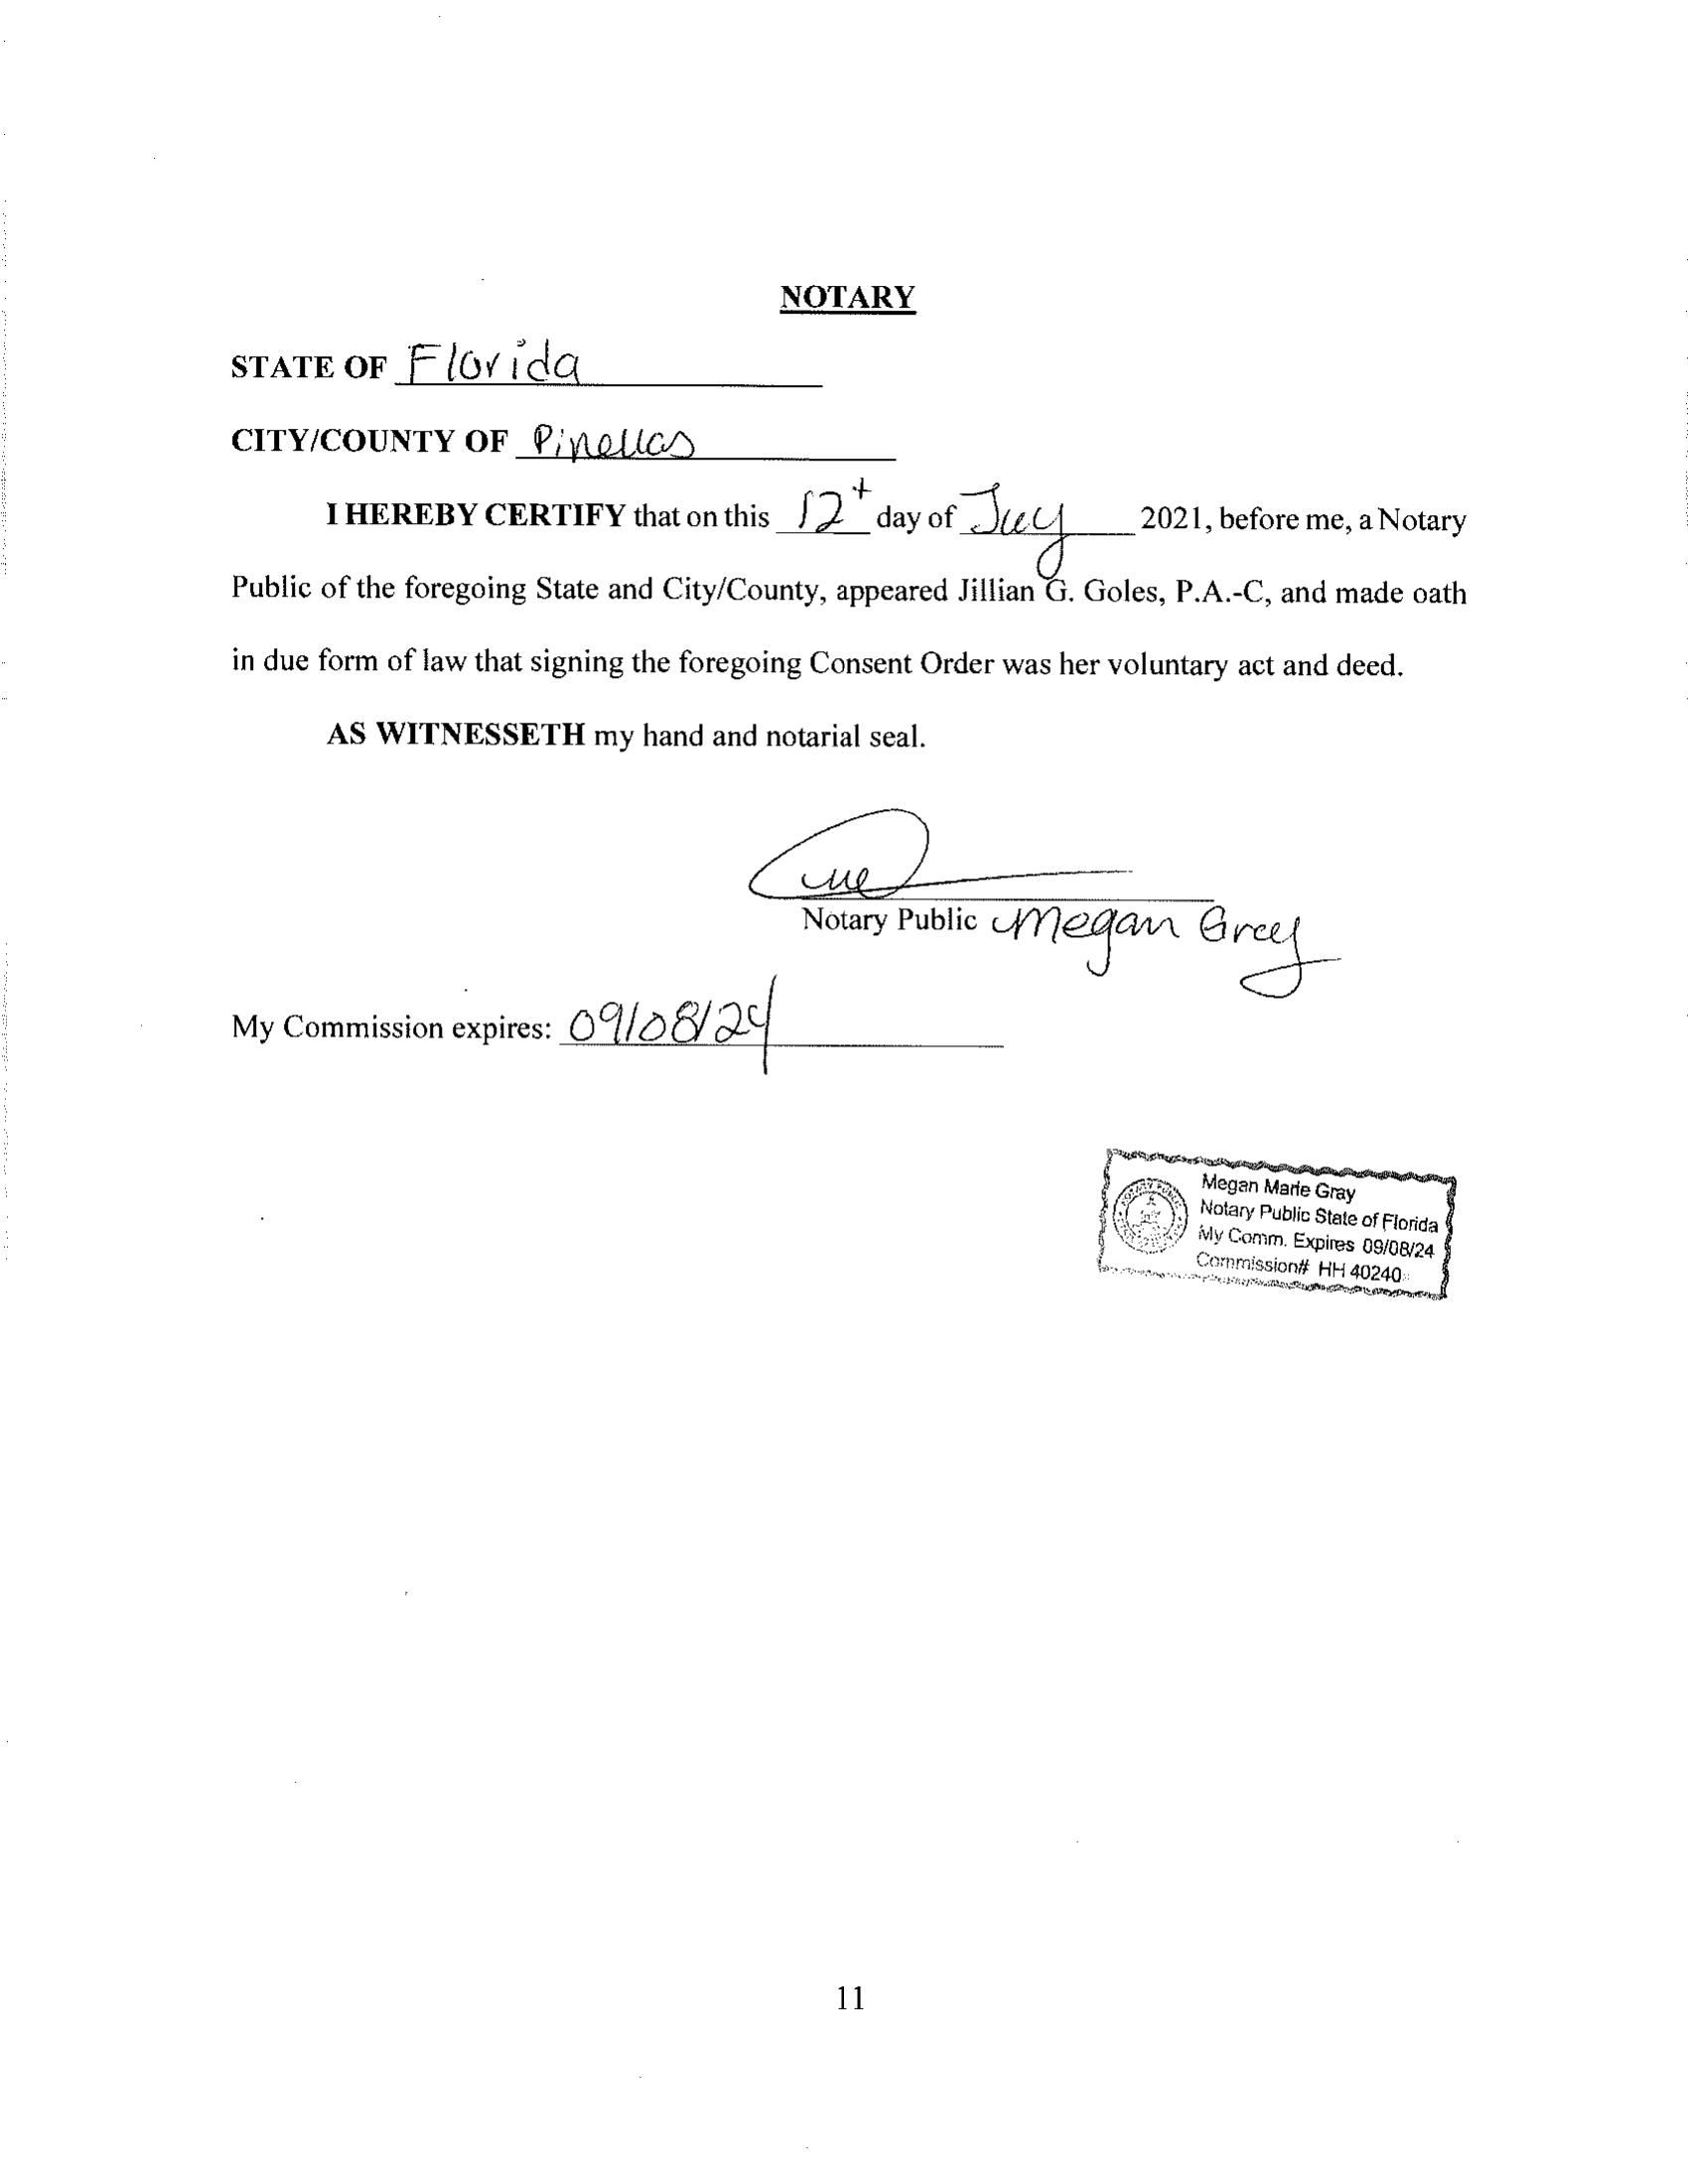 NOTARY
STATE OF Florida
CITY/COUNTY OF Pinellas
I HEREBY CERTIFY that on this 12+ day of July 2021, before me, a Notary
Public of the foregoing State and City/County, appeared Jillian G. Goles, P.A.-C, and made oath
in due form of law that signing the foregoing Consent Order was her voluntary act and deed.
AS WITNESSETH my hand and notarial seal.
Notary Public Megan Gray
My Commission expires: 09/08/24
Megan Marie Gray
Notary Public State of Florida
My Comm. Expires 09/08/24
Commission# HH 40240
11